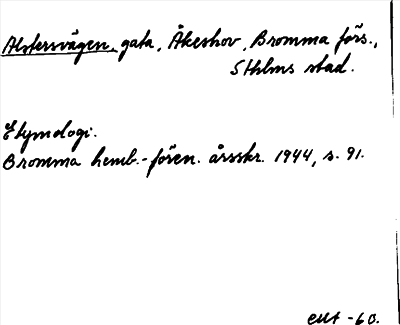 Alstersvägen, gata, Åkeshov, Bromma förs.,
Sthlms stad.
Etymologi.
Bromma hemb.-fören. årsskr. 1944, s. 91.
-60.